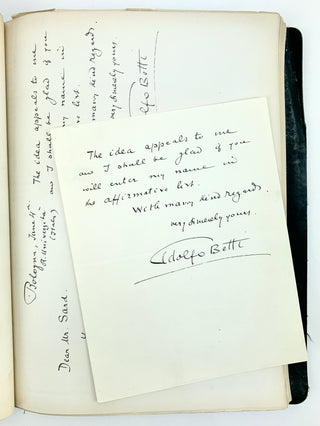 Bologna, June 4th
(Italy)
Dear Mr Sard.
The idea appeals to me
and I shall be glad if you
my name in
list.
many kind regards.
very sincerely yours.
dolfo Betti
The idea appeals to me
and I shall be glad if you
will enter my name in
the affirmative list.
With many kind regards.
very sincerely yours.
Adolfo Betti